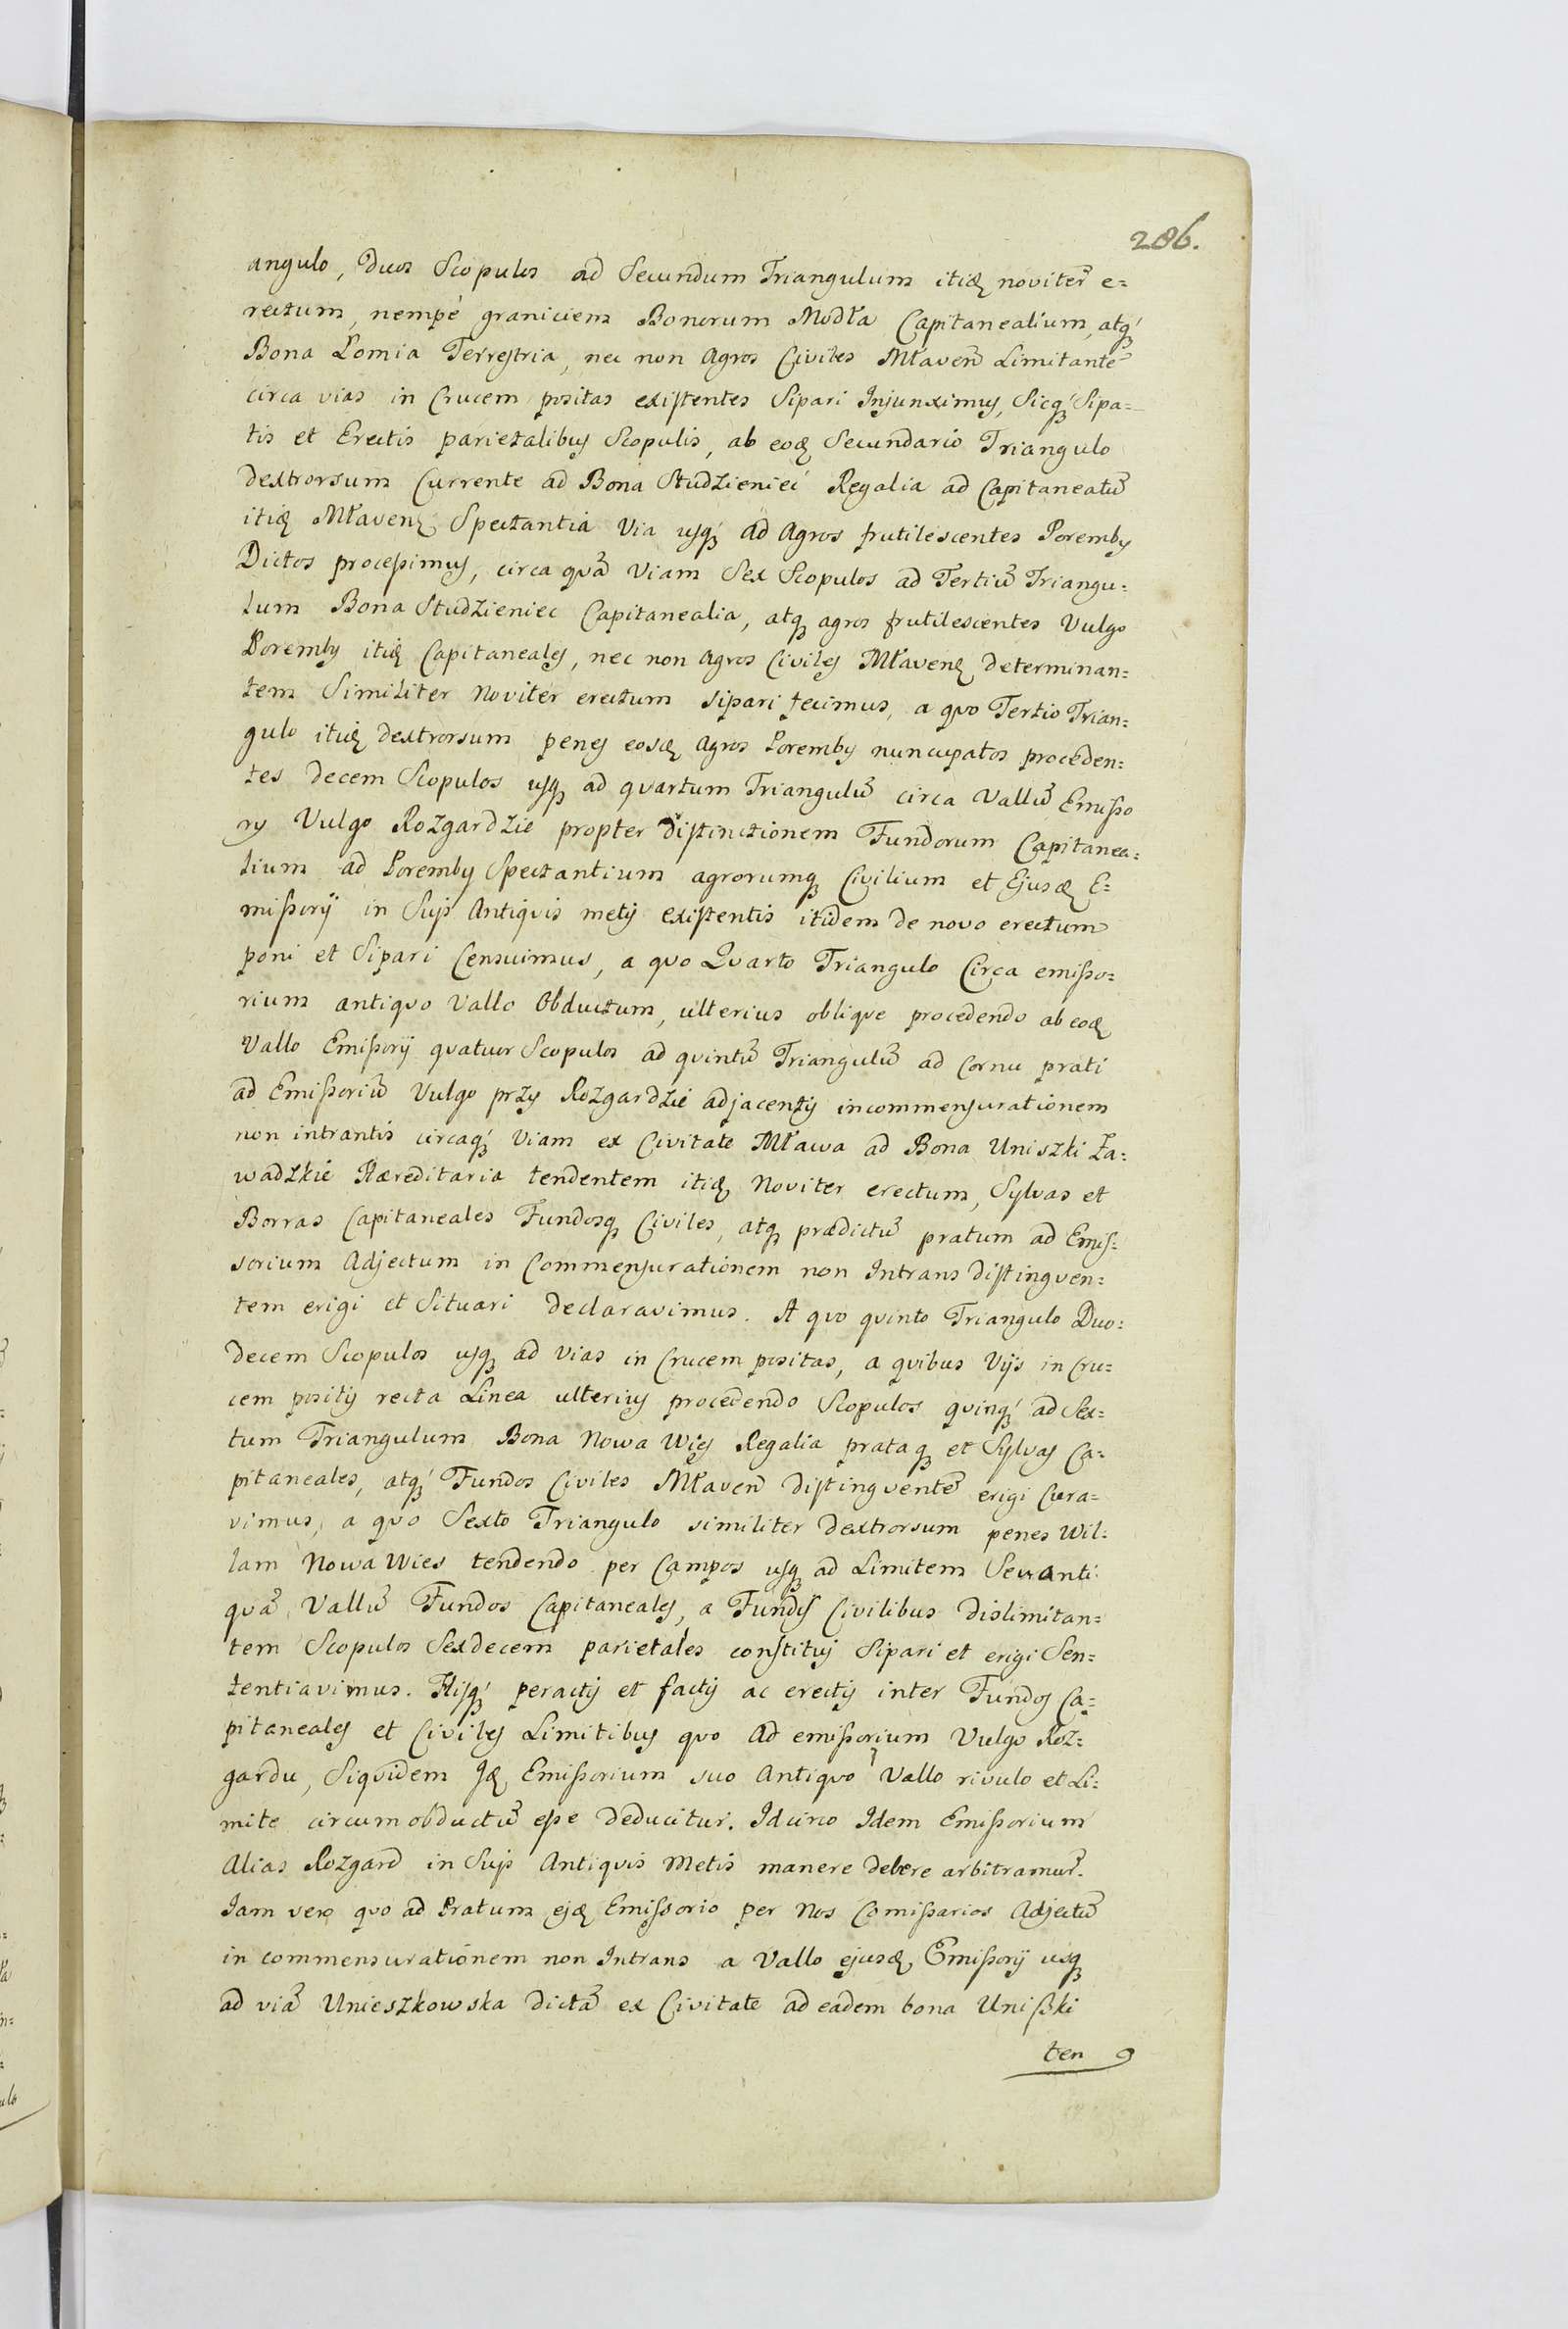 286.
angulo, Duos Scopulos ad Secundum Triangulum itidꝫ noviter e=
rectum, nempè graniciem Bonorum Modła Capitanealium, atqꝫ
Bona Łomia Terrestria, nec non Agros Civiles Mław̃eñ Limitantẽ
circa vias in Crucem positas existentes Sipari Injunximus, Sicqꝫ Sipa=
tis et Erectis parietalibus Scopulis, ab eodꝫ Secundario Triangulo
dextrorsum Currente ad Bona Studzieniec Regalia ad Capitaneatũ
itidꝫ Młavenꝫ Spectantia Via usqꝫ ad Agros frutilescentes Poremby
Dictos processimus, circa quã Viam Sex Scopulos ad Tertiũ Triangu=
lum Bona Studzieniec Capitanealia, atqꝫ agros frutilescentes Vulgo
Poremby itidꝫ Capitaneales, nec non Agros Civiles Młavenꝫ determinan=
tem Similiter Noviter erectum sipari fecimus, a quo Tertio Trian=
gulo itidꝫ dextrorsum penes eosdꝫ Agros Poremby nuncupatos proceden=
tes decem Scopulos usqꝫ ad quartum Triangulũ circa Vallũ Emisso
ry Vulgo Rozgardzie propter distinctionem Fundorum Capitanea=
lium ad Poremby Spectantium agrorumqꝫ Civilium et Ejusdꝫ E=
missorij in Suis Antiquis metis existentis itidem de novo erectum
poni et Sipari Censuimus, a quo Quarto Triangulo Circa emisso=
rium antiquo Vallo Obductum, ulterius oblique procedendo ab eodꝫ
Vallo Emissorij quatuor Scopulos ad quintũ Triangulũ ad Cornu prati
ad Emissoriũ Vulgo przy Rozgardzie adjacentis incommensurationem
non intrantis circaqꝫ Viam ex Civitate Mława ad Bona Uniszki Za=
wadzkie Hæreditaria tendentem itidꝫ Noviter erectum, Sylvas et
Borras Capitaneales Fundosqꝫ Civiles, atqꝫ prædictũ pratum ad Emis=
sorium Adjectum in Commensurationem non Intrans distingven=
tem erigi et Situari declaravimus. A quo quinto Triangulo Duo=
decem Scopulos usqꝫ ad Vias in Crucem positas, a quibus Vijs in Cru=
cem positis recta Linea ulterius procedendo Scopulos quinqꝫ ad Sex=
tum Triangulum Bona Nowa Wies Regalia prataqꝫ et Sylvas Ca=
pitaneales, atqꝫ Fundos Civiles Młaveñ distingventẽ erigi Cura=
vimus, a quo Sexto Triangulo similiter dextrorsum penes Wil=
lam Nowa Wies tendendo per Campos usqꝫ ad Limitem Seu anti
quã Vallũ Fundos Capitaneales, a Fundis Civilibus dislimitan=
tem Scopulos Sexdecem parietales constitui Sipari et erigi Sen=
tentiavimus. Hisqꝫ peractis et factis ac erectis inter Fundos Ca=
pitaneales et Civiles Limitibus quo Ad emissorium Vulgo Roz=
gardu, Siquidem Idꝫ Emissorium suo Antiquo Vallo rivulo et Li=
mite circumobductũ esse deducitur. Idcirco Idem Emissorium
Alias Rozgard in Suis Antiquis Metis manere debere arbitramur.
Iam vero quo ad Pratum ejdꝫ Emissorio per Nos Comissarios Adjectũ
in commensurationem non Intrans a Vallo ejusdꝫ Emissorij usqꝫ
ad viã Unieszkowska dictã ex Civitate ad eadem bona Unisski
ten